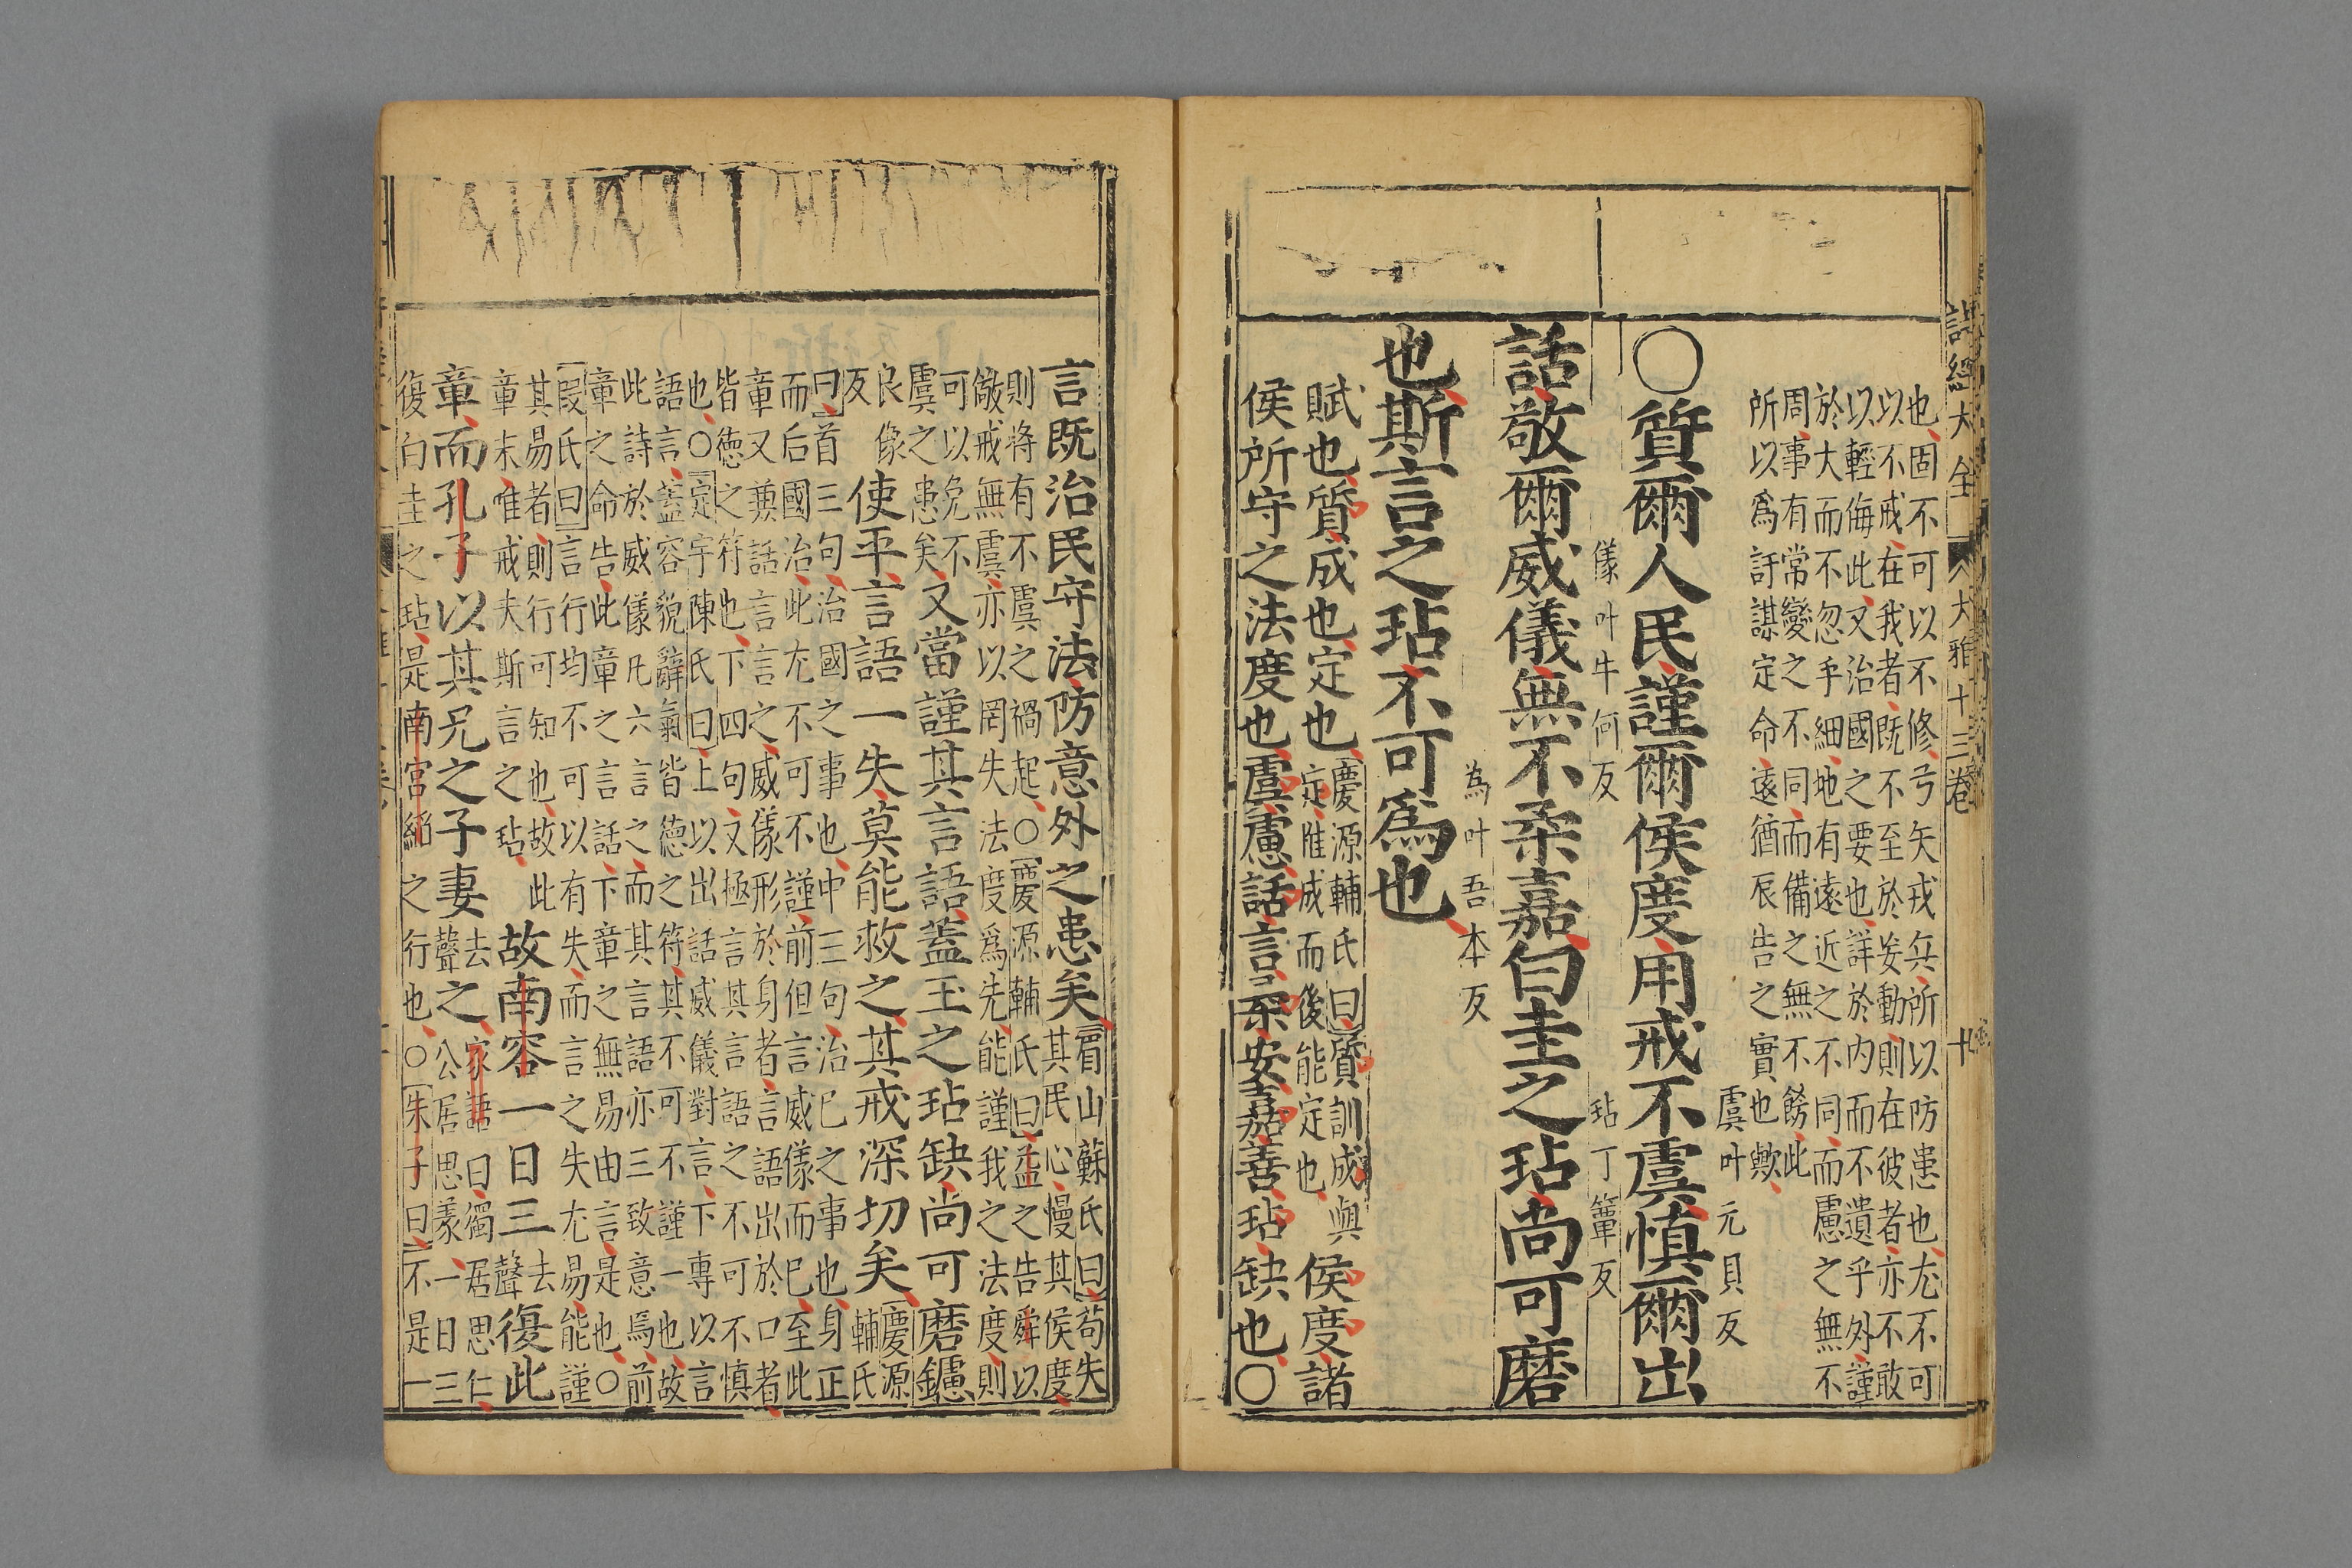 詩經大全 大雅十三卷 十
也固不可以不修弓矢戎兵所以防患也尤不可
以不戒在我者既不至於妄動則在彼者亦不敢
以輕侮此又治國之要也詳於内而不遺乎外謹
於大而不忽乎細地有遠近之不同而慮之無不
周事有常變之不同而備之無不餙此
所以爲訏謀定命遠猶辰告之實也歟
○質爾人民謹爾侯度用戒不虞慎爾出
虞叶元具反
話敬爾威儀無不柔嘉白圭之玷尚可磨
儀叶牛何反 玷丁簟反
也斯言之玷不可爲也
為叶吾本反
賦也質成也定也
慶源輔氏曰質訓成與
定隹成而後能定也
侯度諸
侯所守之法度也虞慮話言柔安嘉善玷缺也○
言既治民守法防意外之患矣
眉山蘇氏曰苟失
其民心慢其侯度
則將有不虞之禍起○慶源輔氏曰益之告舜以
儆戒無虞亦以罔失法度爲先能謹我之法度則
可以免不
虞之患矣
又當謹其言語蓋玉之玷缺尚可磨鑢
良像
反
使平言語一失莫能救之其戒深切矣
慶源
輔氏
曰首三句治國之事也中三句治已之事也身正
而后國治此尤不可不謹前但言威儀而已至此
章又兼話言言之威儀形於身者言語出於口者
皆德之符也下四句又極言其言語之不可不慎
也○定宇陳氏曰上以出話威儀對言下專以言
語言蓋容貌辭氣皆德之符其不可不謹一也故
此詩於威儀凡六言之而其言語亦三致意焉前
章之命告此章之言話下章之無易由言是也○
叚氏曰言行均不可以有失而言之失尤易能謹
其易者則行可知也故此
章末惟戒夫斯言之玷
故南容一日三
去
聲
復此
章而孔子以其兄之子妻
去
聲
之
家語曰獨居思仁
公居思義一日三
復白圭之玷是南宮縚之行也○朱子曰不是一